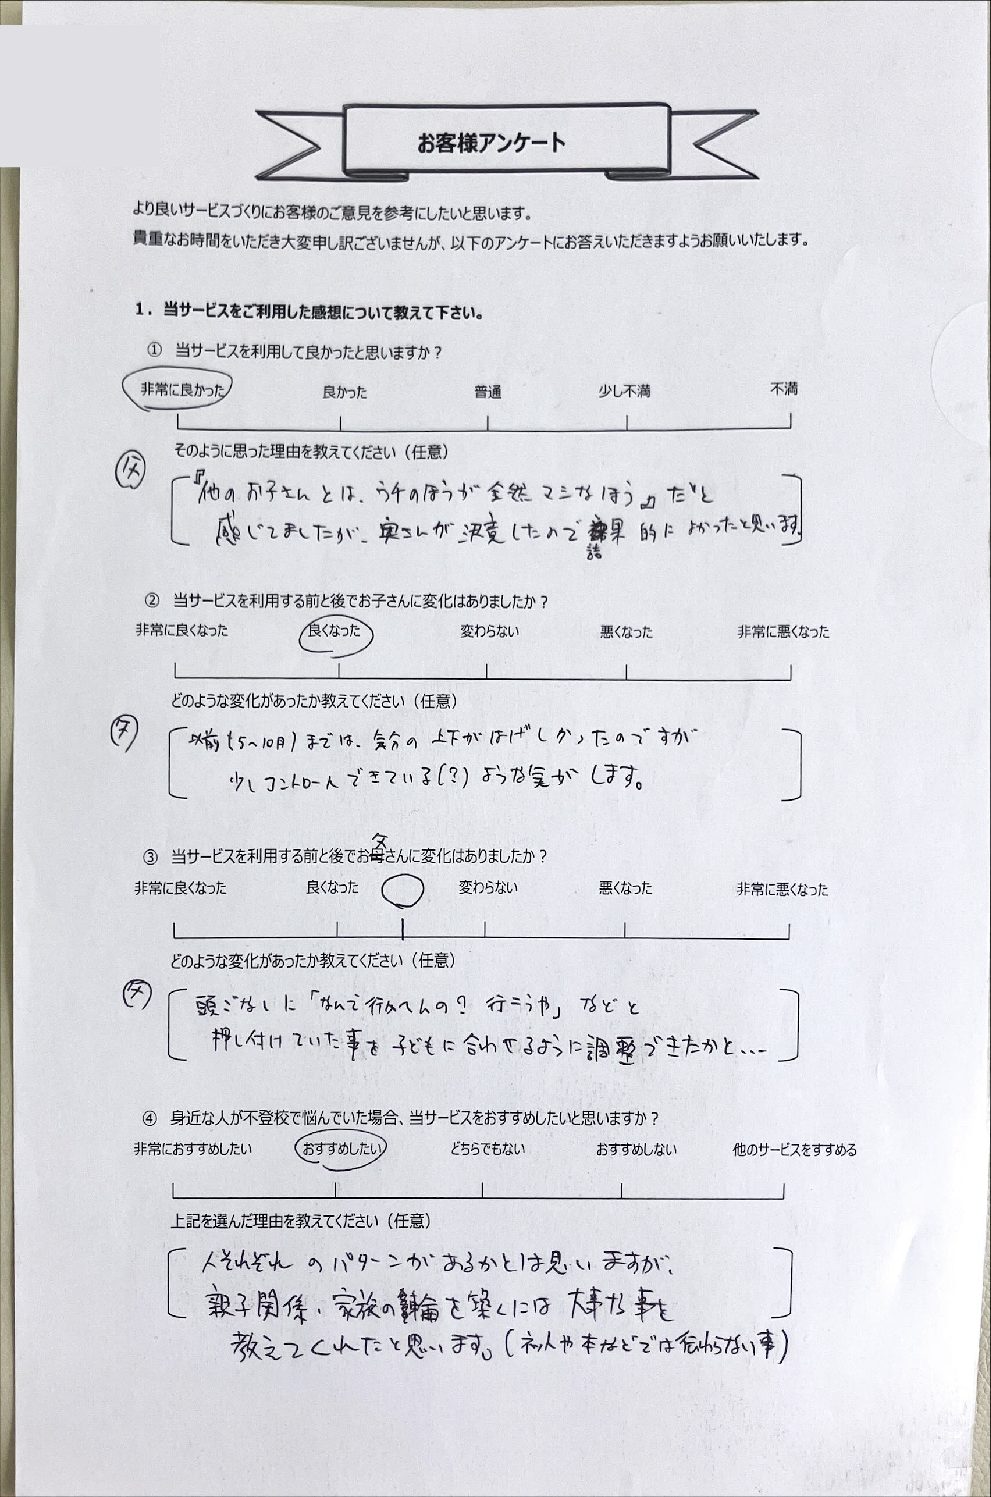 お客様アンケート
より良いサービスづくりにお客様のご意見を参考にしたいと思います。
貴重なお時間をいただき大変申し訳ございませんが、以下のアンケートにお答えいただきますようお願いいたします。
1．当サービスをご利用した感想について教えて下さい。
① 当サービスを利用して良かったと思いますか？
非常に良かった 良かった 普通 少し不満 不満
そのように思った理由を教えてください（任意）
父
『他のお子さんとは、ウチのほうが全然マシなほう』だと
感じてましたが、奥さんが決意したので結果的によかったと思います。
② 当サービスを利用する前と後でお子さんに変化はありましたか？
非常に良くなった 良くなった 変わらない 悪くなった 非常に悪くなった
どのような変化があったか教えてください（任意）
父
以前(5〜10月)までは、気分の上下がはげしかったのですが
少しコントロールできている(?)ような気がします。
③ 当サービスを利用する前と後でお父さんに変化はありましたか？
非常に良くなった 良くなった 変わらない 悪くなった 非常に悪くなった
どのような変化があったか教えてください（任意）
父
頭ごなしに「なんで行かへんの？行こうや」などと
押し付けていた事を子どもに合わせるように調整できたかと...
④ 身近な人が不登校で悩んでいた場合、当サービスをおすすめしたいと思いますか？
非常におすすめしたい おすすめしたい どちらでもない おすすめしない 他のサービスをすすめる
上記を選んだ理由を教えてください（任意）
人それぞれのパターンがあるかとは思いますが、
親子関係、家族の輪を築くには大事な事を
教えてくれたと思います。(ネットや本などでは伝わらない事)